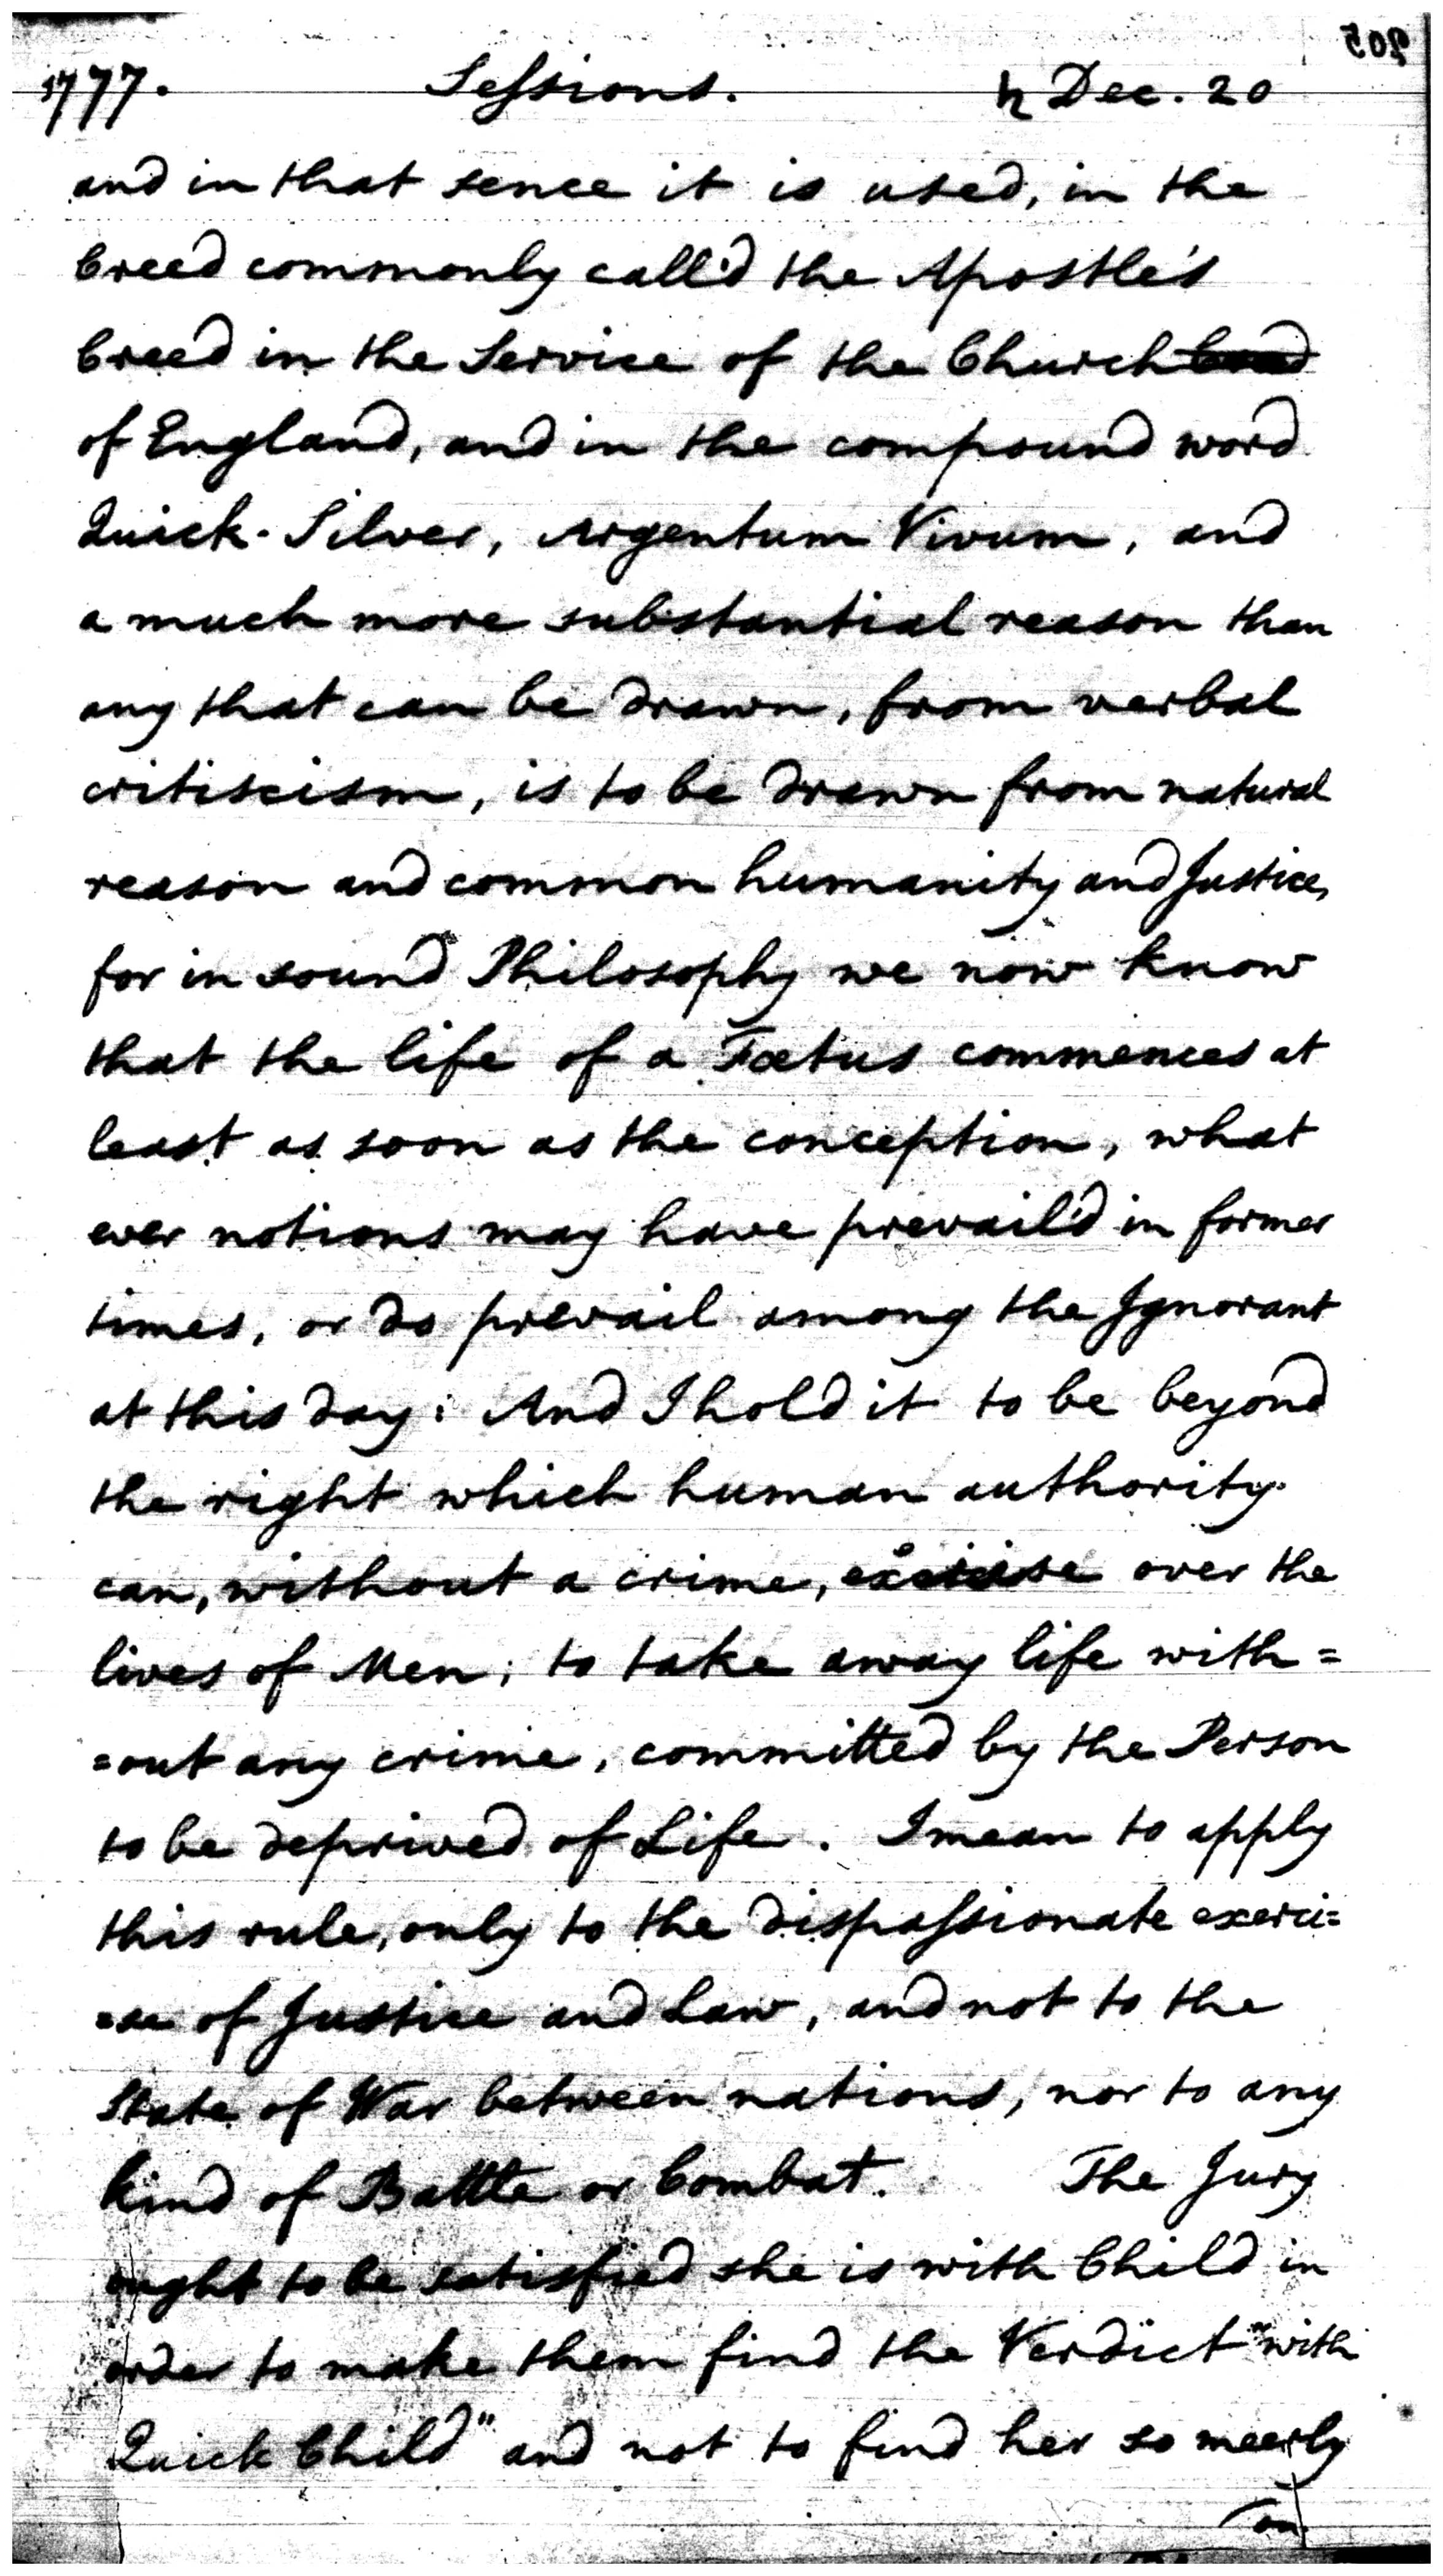 205
1777. Sessions. ♄ Dec. 20
and in that sence it is used, in the
Creed commonly call'd the Apostle's
Creed in the Service of the Church
of England, and in the compound word
Quick-Silver, Argentum Vivum, and
a much more substantial reason than
any that can be drawn, from verbal
critiscism, is to be drawn from natural
reason and common humanity and Justice,
for in sound Philosophy we now know
that the life of a Fœtus commences at
least as soon as the conception, what
ever notions may have prevail'd in former
times, or do prevail among the Ignorant
at this day: And I hold it to be beyond
the right which human authority
can, without a crime, over the
lives of Men; to take away life with=
=out any crime, committed by the Person
to be deprived of Life. I mean to apply
this rule, only to the dispassionate exerci=
=se of Justice and Law, and not to the
State of War between nations, nor to any
kind of Battle or Combat. The Jury
ought to be satisfied she is with Child in
order to make them find the Verdict "with
Quick Child" and not to find her so meerly
on